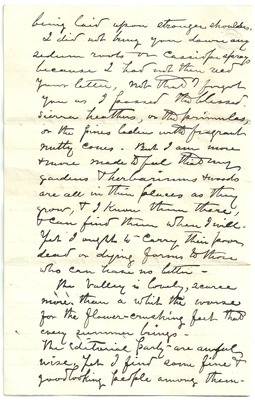 being laid upon stronger shoulders.
I did not bring you down any
sedum roots or Cassiope sprays
because I had not then rec'd
your letter, not that I forgot
you as I passed the blessed
Sierra heathers, or the primulas,
or the pines laden with fragrant
nutty cones. But I am more
& more made to feel that my
gardens & herbariums & woods
are all in their places as they
grow, & I know them there,
& can find them when I will.
Yet I ought to carry their poor
dead or dying forms to those
who can have no better -
The Valley is lovely, scarce
more than a whit the worse
for the flower-crushing feet that
every summer brings -
The Editorial Party are awfully
wise. Yet I find some fine &
goodlooking people among them -